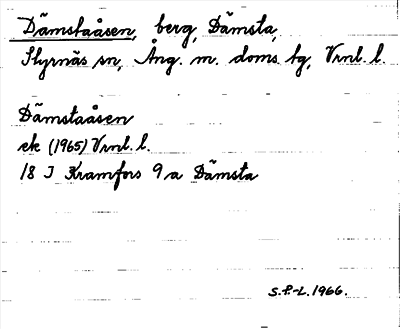 Dämstaåsen, berg, Dämsta,
Styrnäs sn, Ång. m. doms. tg, Vrnl. l.
Dämstaåsen
ek (1965) Vrnl. l.
18 I Kramfors 9 a Dämsta
S.P.-L. 1966.